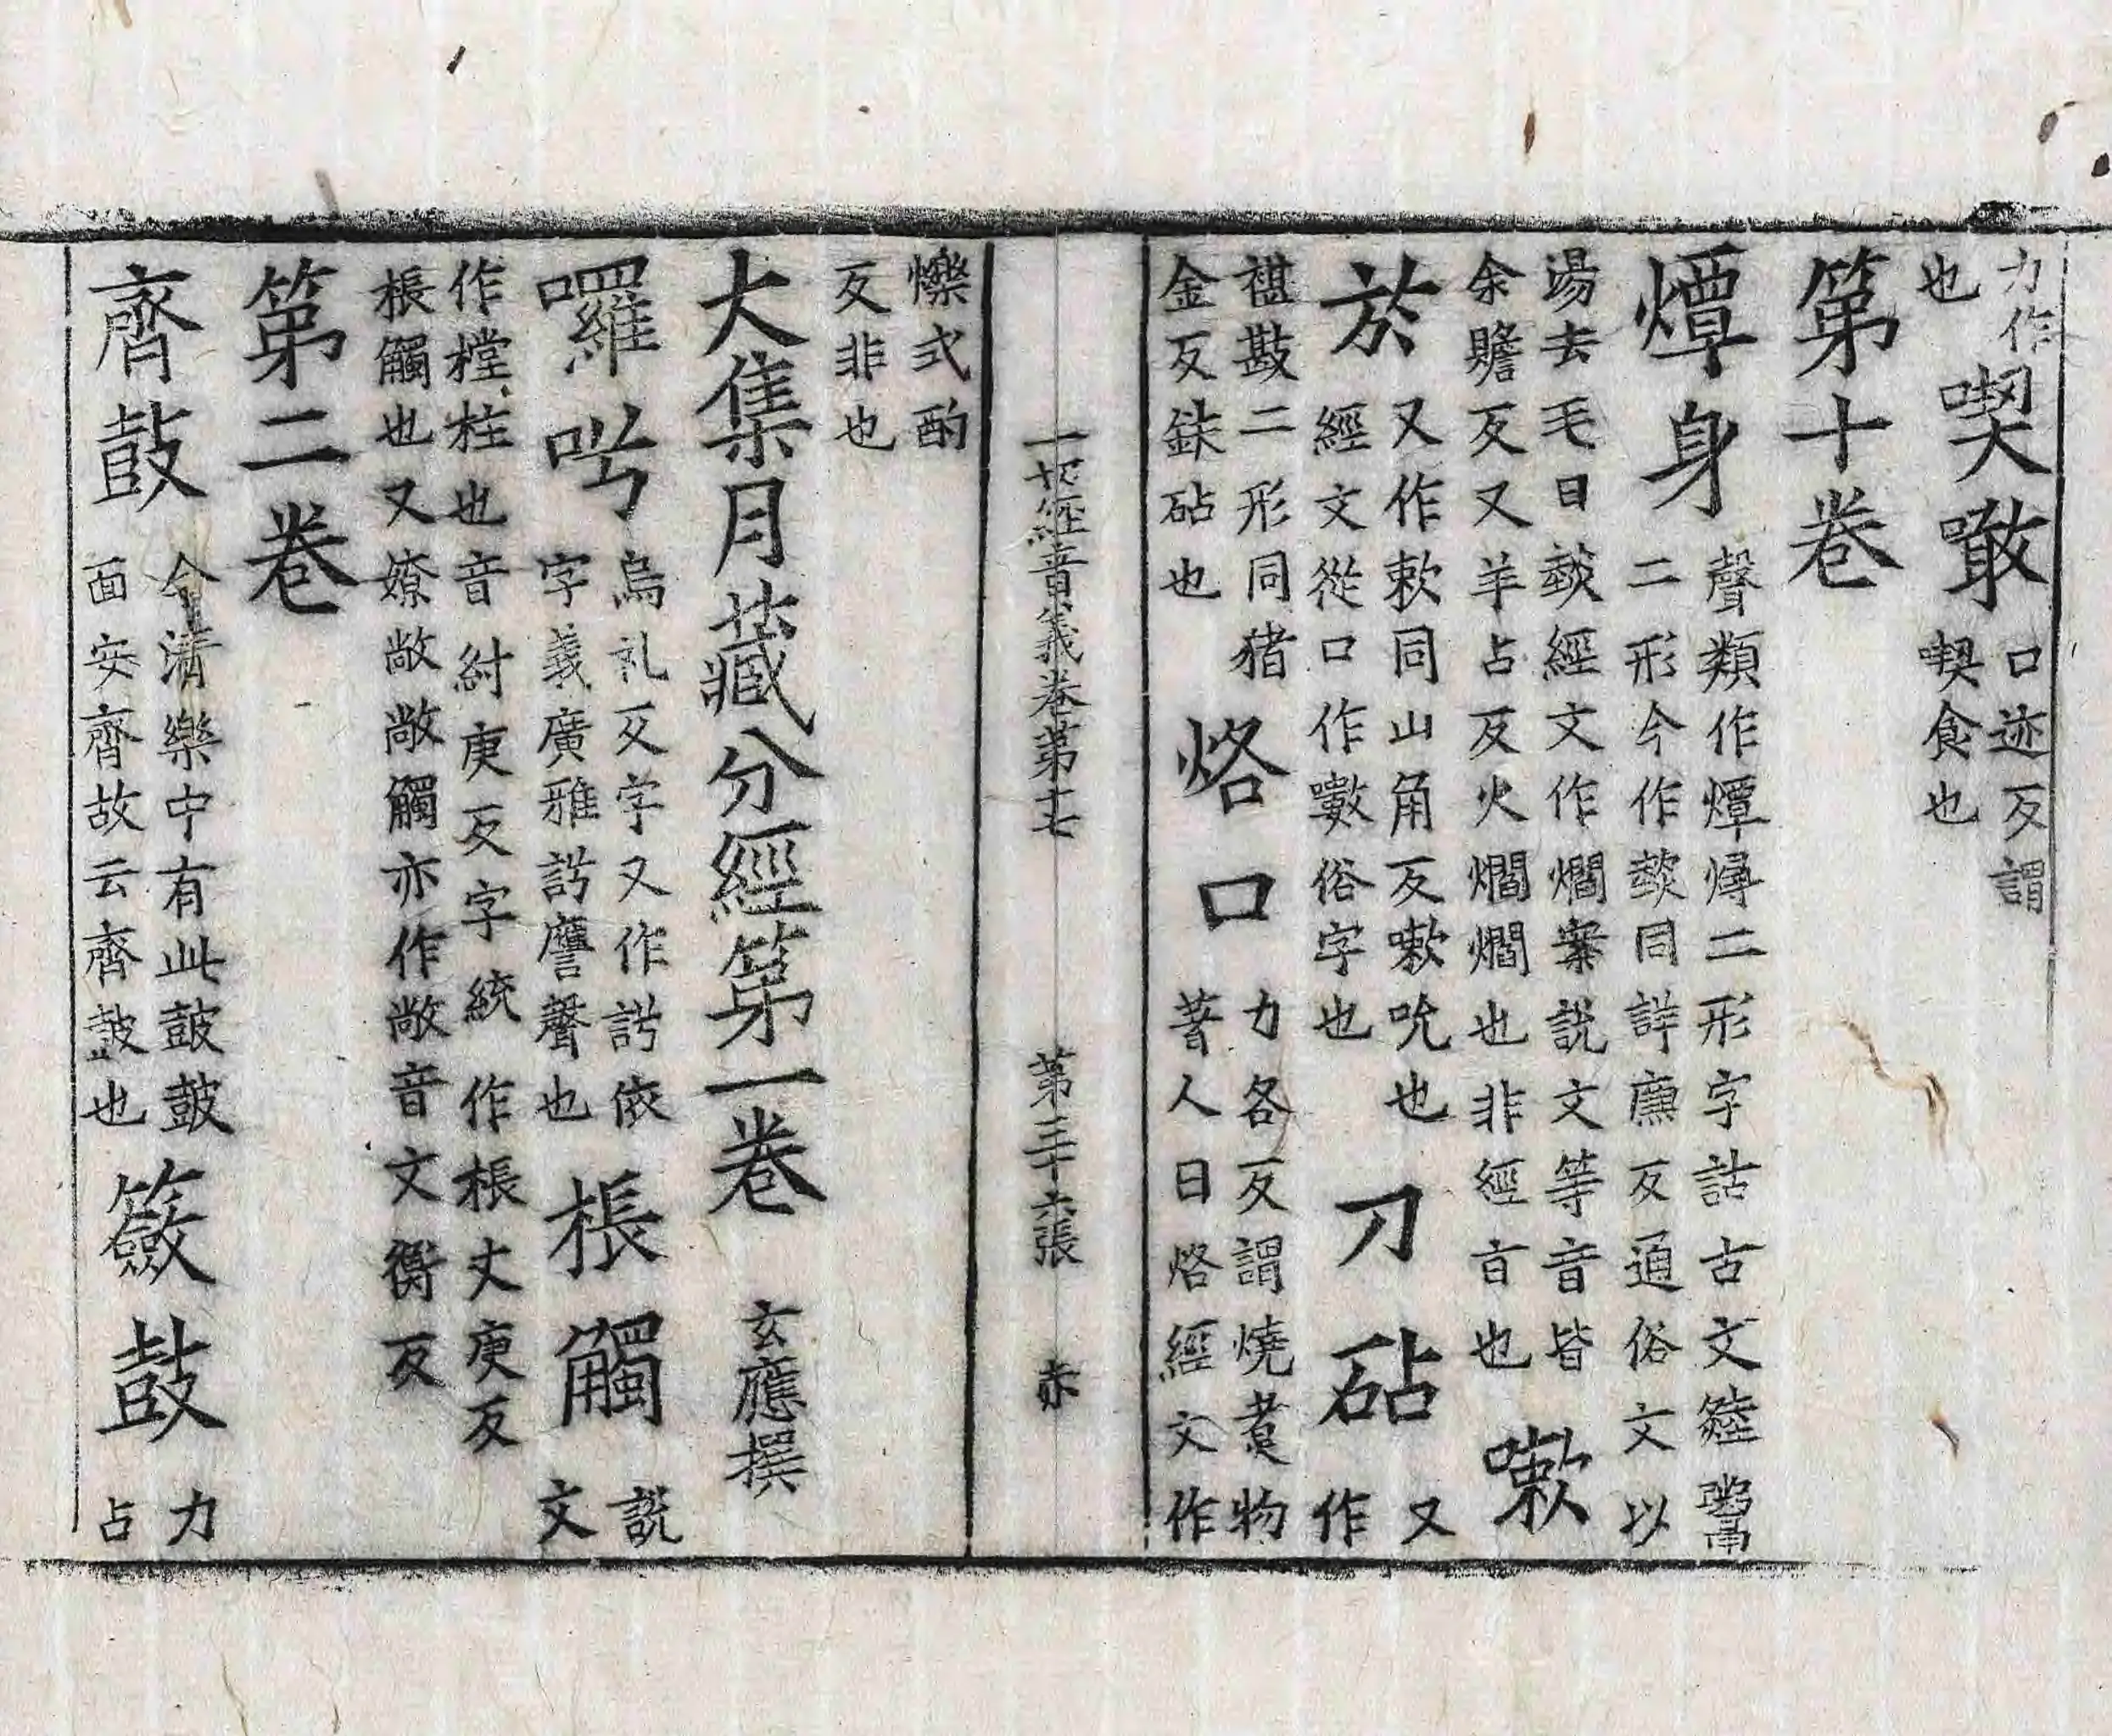 力作
也
喫噉口迹反謂
喫食也
第十卷
燂身聲類作燂燖二形字詁古文𩱏𩱈
二形今作㷿同詳廉反通俗文以
湯去毛曰㷿經文作爓案說文等音皆
余贍反又羊占反火爓爓也非經音也
嗽
於又作欶同山角反嗽吮也
經文從口作嗽俗字也
刀砧又
作
椹㪛二形同猪
金反鈇砧也
烙口力各反謂燒煑物
著人曰烙經文作
爍式酌
反非也
一切經音義卷第十七 第三十六張 赤
大集月藏分經第一卷 玄應撰
囉㖃烏礼反字又作䛄依
字義廣雅䛄譍聲也
棖觸說
文
作樘柱也音紂庚反字統作棖丈庚反
棖觸也又嫽敞敞觸亦作敞音文衡反
第二卷
齊鼓今清樂中有此皷皷
面安齊故云齊皷也
籨鼓力
占